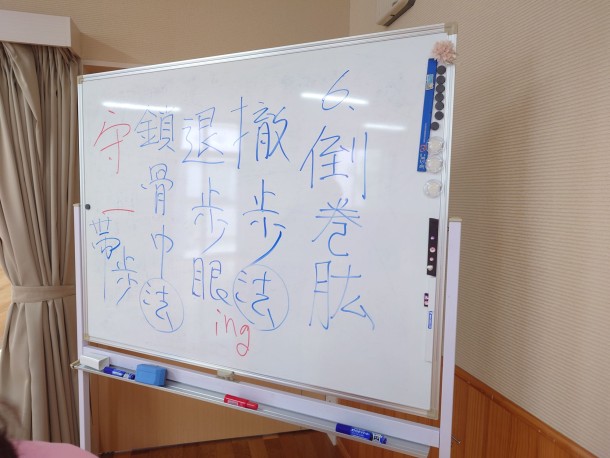 6. 倒巻肱
撤歩法
退歩眼
ing
鎖骨巾法
守一
帯歩